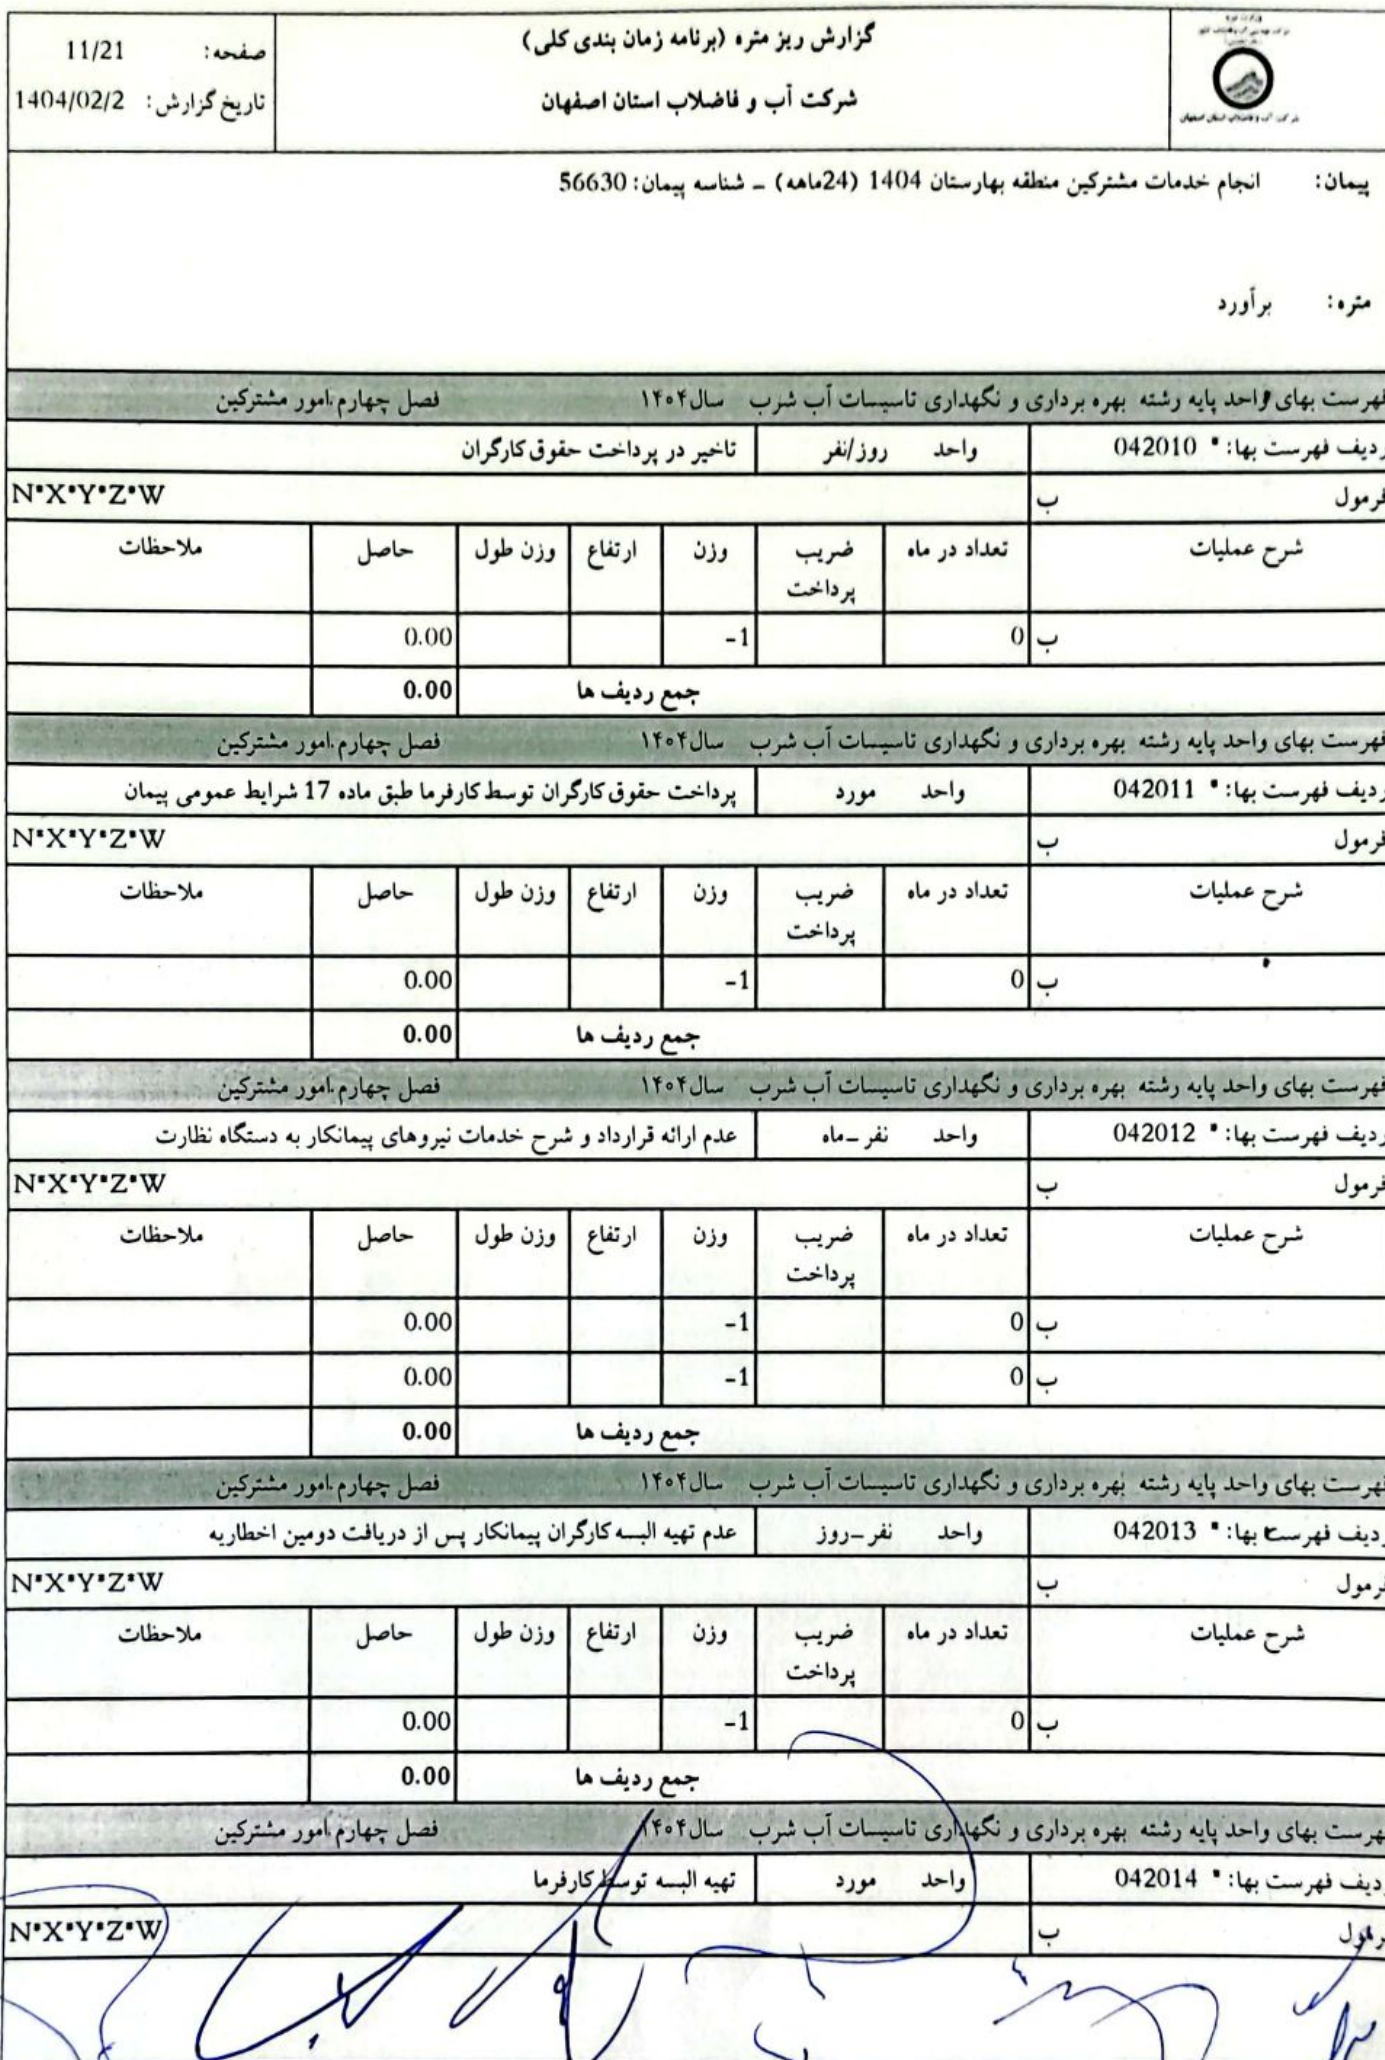 گزارش ریز متره (برنامه زمان بندی کلی)
شرکت آب و فاضلاب استان اصفهان
صفحه: 11/21
تاریخ گزارش: 1404/02/2
شرکت آب و فاضلاب استان اصفهان
پیمان: انجام خدمات مشترکین منطقه بهارستان 1404 (24ماهه) - شناسه پیمان: 56630
متره: برآورد
فهرست بهای واحد پایه رشته بهره برداری و نگهداری تاسیسات آب شرب سال۱۴۰۴ فصل چهارم.امور مشترکین
ردیف فهرست بها: * 042010 واحد روز/نفر تاخیر در پرداخت حقوق کارگران
فرمول ب N*X*Y*Z*W
شرح عملیات تعداد در ماه ضریب پرداخت وزن ارتفاع وزن طول حاصل ملاحظات
ب 0 -1 0.00
جمع ردیف ها 0.00
فهرست بهای واحد پایه رشته بهره برداری و نگهداری تاسیسات آب شرب سال۱۴۰۴ فصل چهارم.امور مشترکین
ردیف فهرست بها: * 042011 واحد مورد پرداخت حقوق کارگران توسط کارفرما طبق ماده 17 شرایط عمومی پیمان
فرمول ب N*X*Y*Z*W
شرح عملیات تعداد در ماه ضریب پرداخت وزن ارتفاع وزن طول حاصل ملاحظات
ب 0 -1 0.00
جمع ردیف ها 0.00
فهرست بهای واحد پایه رشته بهره برداری و نگهداری تاسیسات آب شرب سال۱۴۰۴ فصل چهارم.امور مشترکین
ردیف فهرست بها: * 042012 واحد نفر-ماه عدم ارائه قرارداد و شرح خدمات نیروهای پیمانکار به دستگاه نظارت
فرمول ب N*X*Y*Z*W
شرح عملیات تعداد در ماه ضریب پرداخت وزن ارتفاع وزن طول حاصل ملاحظات
ب 0 -1 0.00
ب 0 -1 0.00
جمع ردیف ها 0.00
فهرست بهای واحد پایه رشته بهره برداری و نگهداری تاسیسات آب شرب سال۱۴۰۴ فصل چهارم.امور مشترکین
ردیف فهرست بها: * 042013 واحد نفر-روز عدم تهیه البسه کارگران پیمانکار پس از دریافت دومین اخطاریه
فرمول ب N*X*Y*Z*W
شرح عملیات تعداد در ماه ضریب پرداخت وزن ارتفاع وزن طول حاصل ملاحظات
ب 0 -1 0.00
جمع ردیف ها 0.00
فهرست بهای واحد پایه رشته بهره برداری و نگهداری تاسیسات آب شرب سال۱۴۰۴ فصل چهارم.امور مشترکین
ردیف فهرست بها: * 042014 واحد مورد تهیه البسه توسط کارفرما
فرمول ب N*X*Y*Z*W